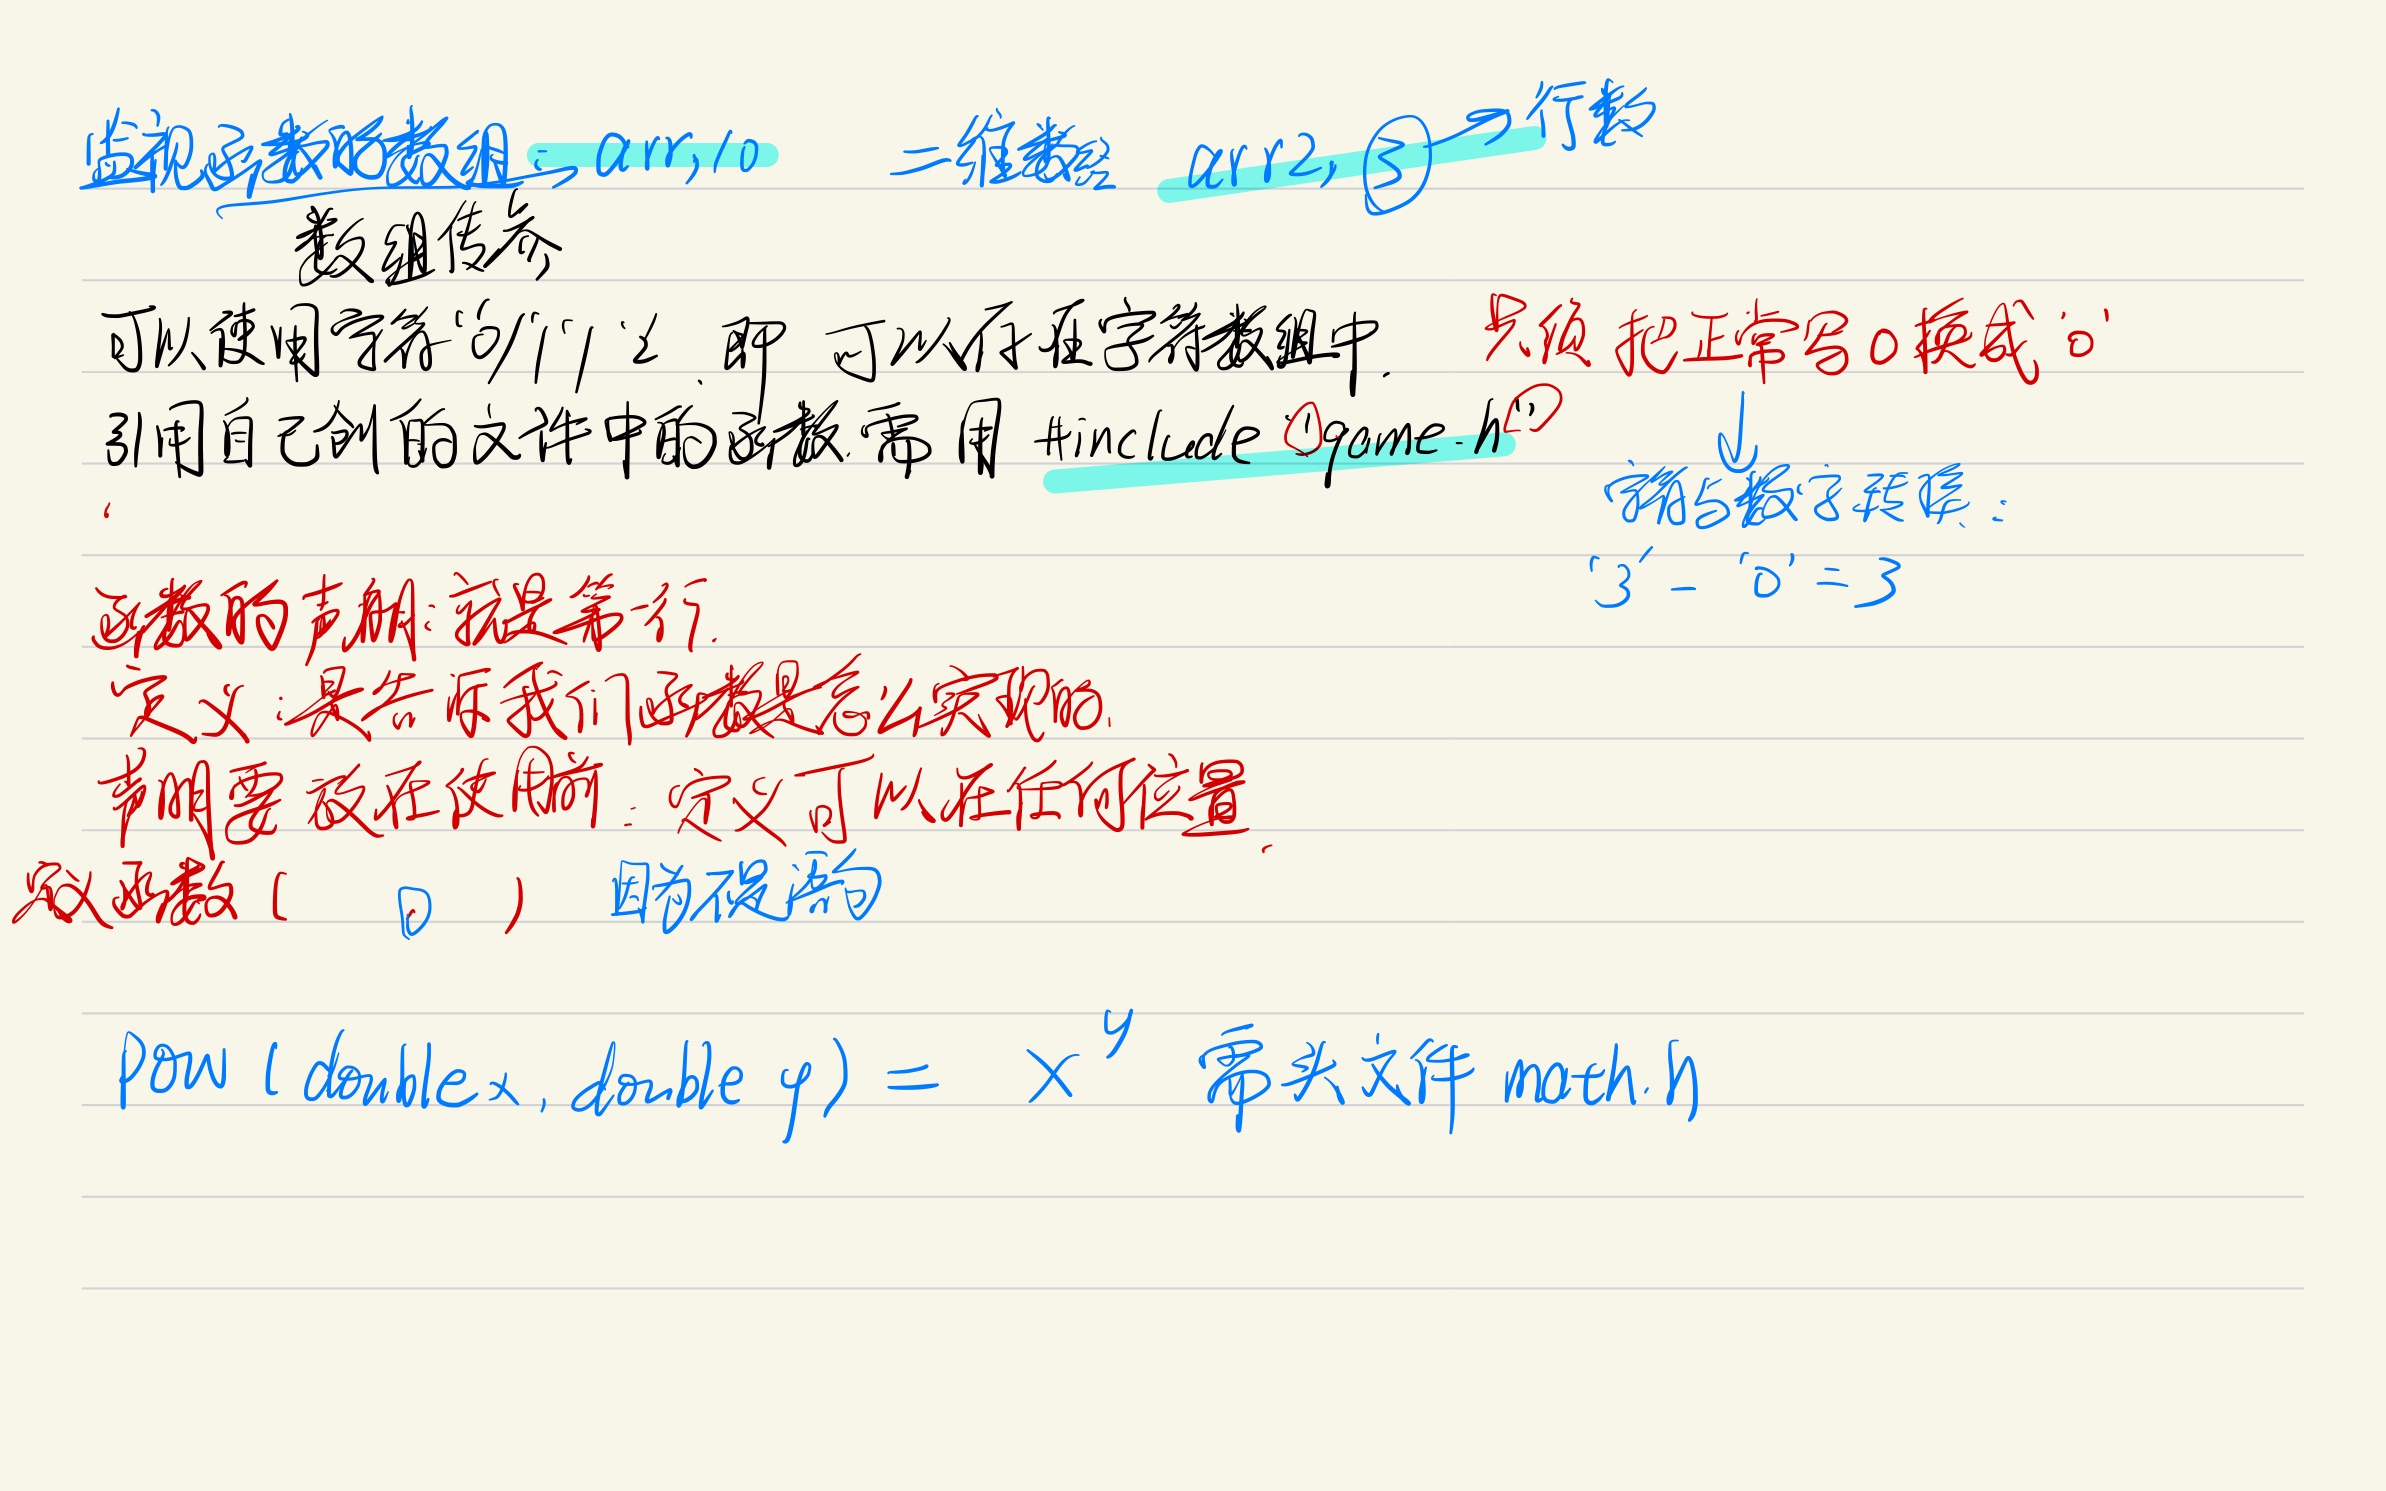 监视函数的数组: arr,10 二维数组 arr2, 3 → 行数
数组传参
可以使用字符'0'/'1'/'2'. 即可以存在字符数组中. 只须把正常写0换成'0'
引用自己创的文件中的函数.需用 #include "game.h"
字符与数字转换:
'3' - '0' = 3
函数的声明:就是第一行.
定义:是告诉我们函数是怎么实现的.
声明要放在使用前: 定义可以在任何位置.
定义函数( ) 因为不是语句
pow (double x, double y) = x^y 需头文件 math.h